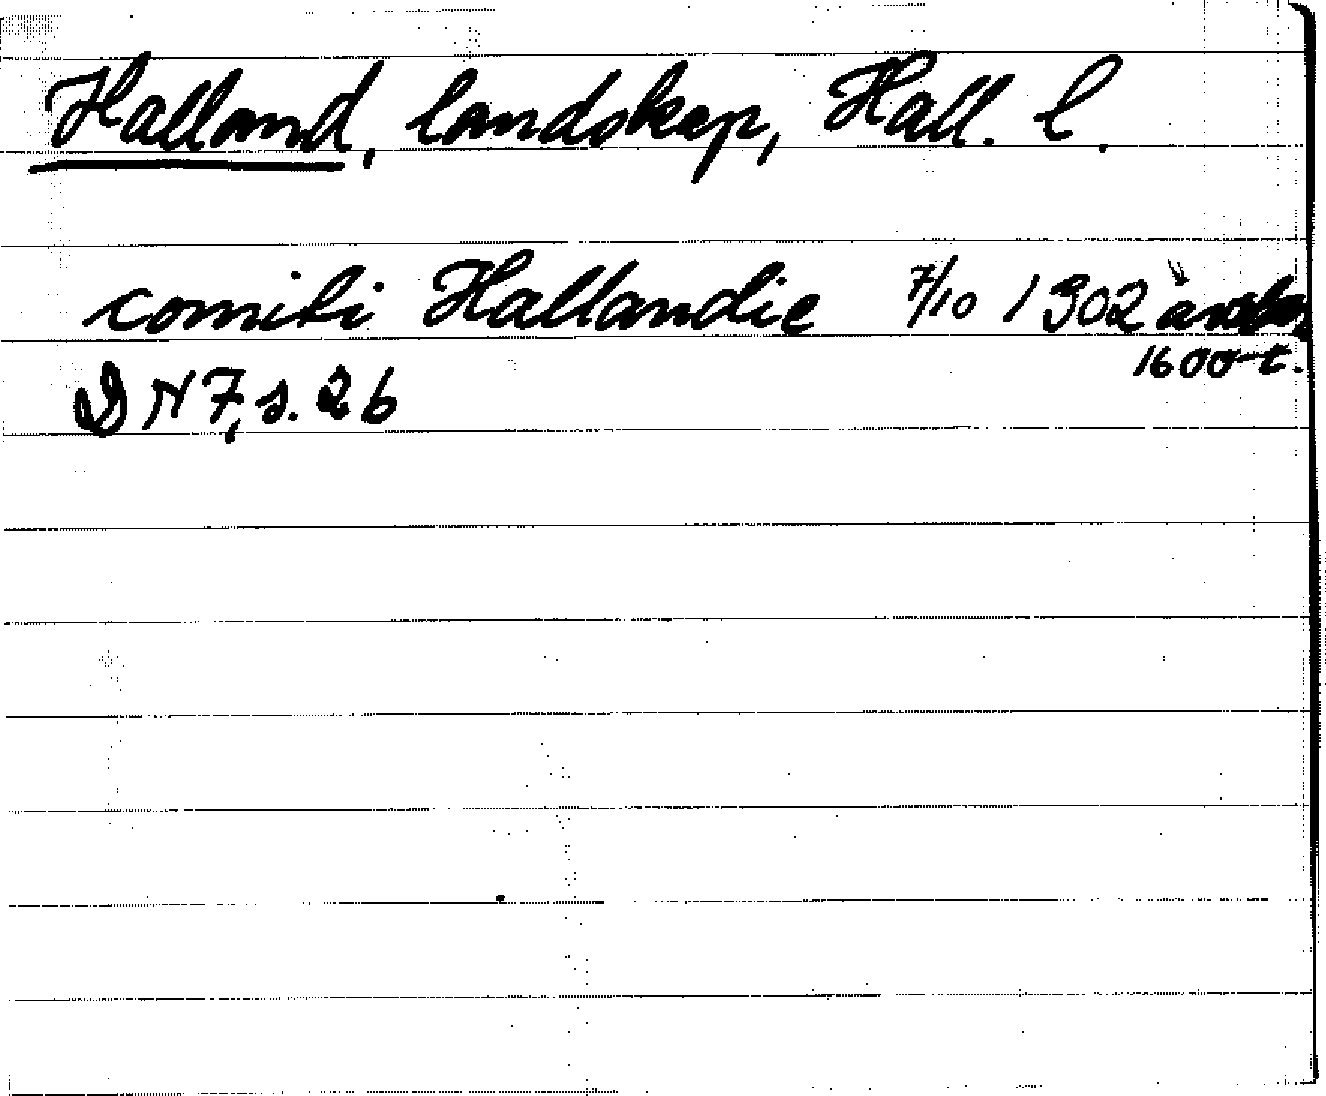 Halland, landskap, Hall. l.
comiti Hallandie 7/10 1302
1600-t.
DN 7, s. 26